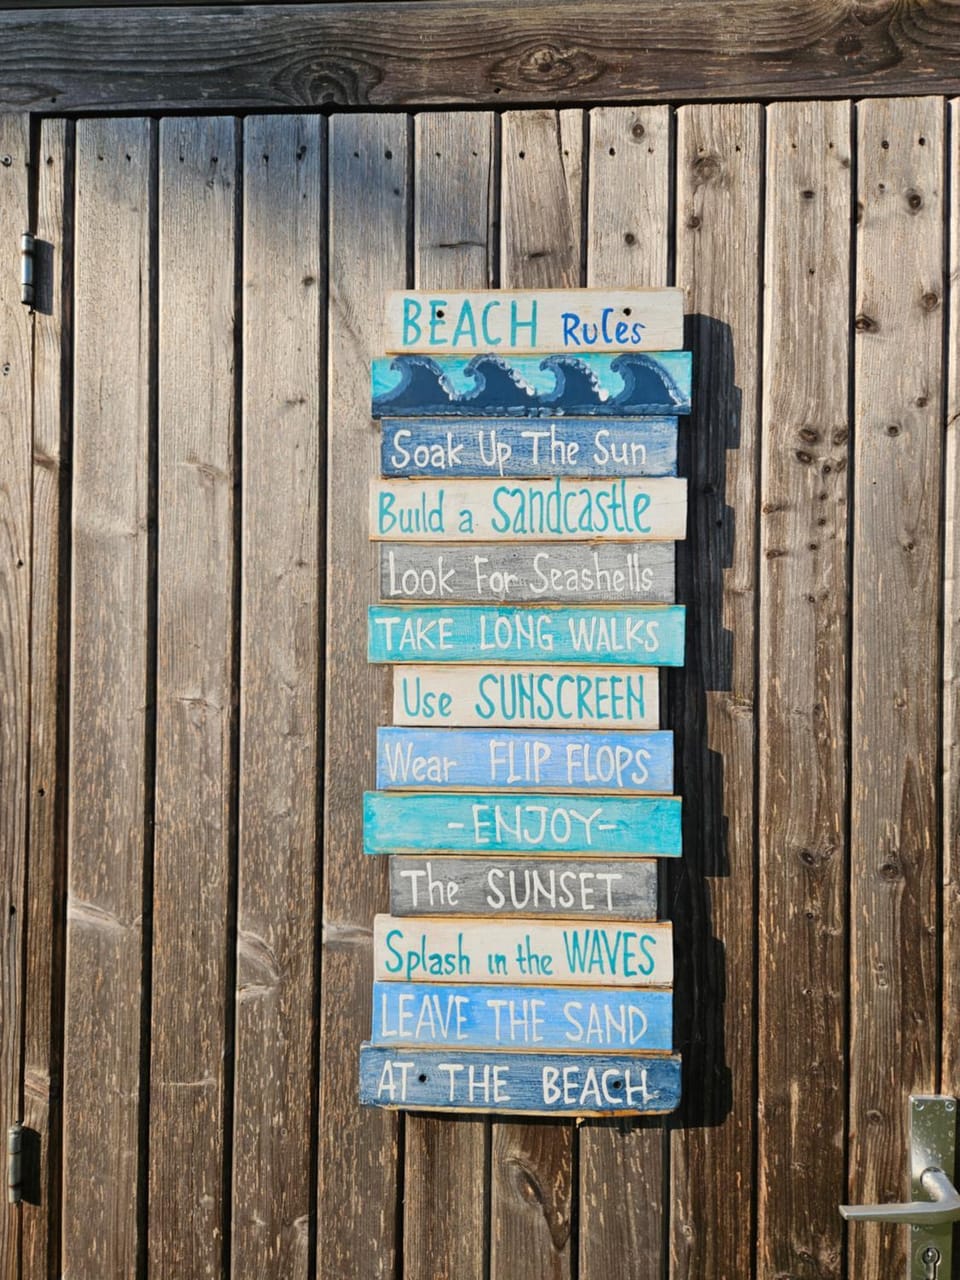 BEACH Rules
Soak Up The Sun
Build a Sandcastle
Look For Seashells
TAKE LONG WALKS
Use SUNSCREEN
Wear FLIP FLOPS
-ENJOY-
The SUNSET
Splash in the WAVES
LEAVE THE SAND
AT THE BEACH